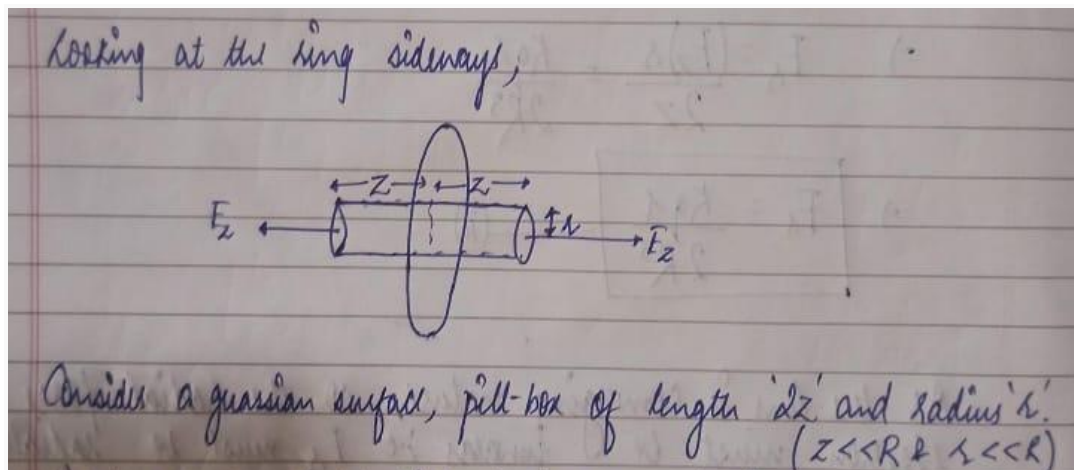 Looking at the ring sideways,
z z
E_z r E_z
Consider a guassian surface, pill-box of length '2z' and radius 'r'.
(z<<R & r<<R)